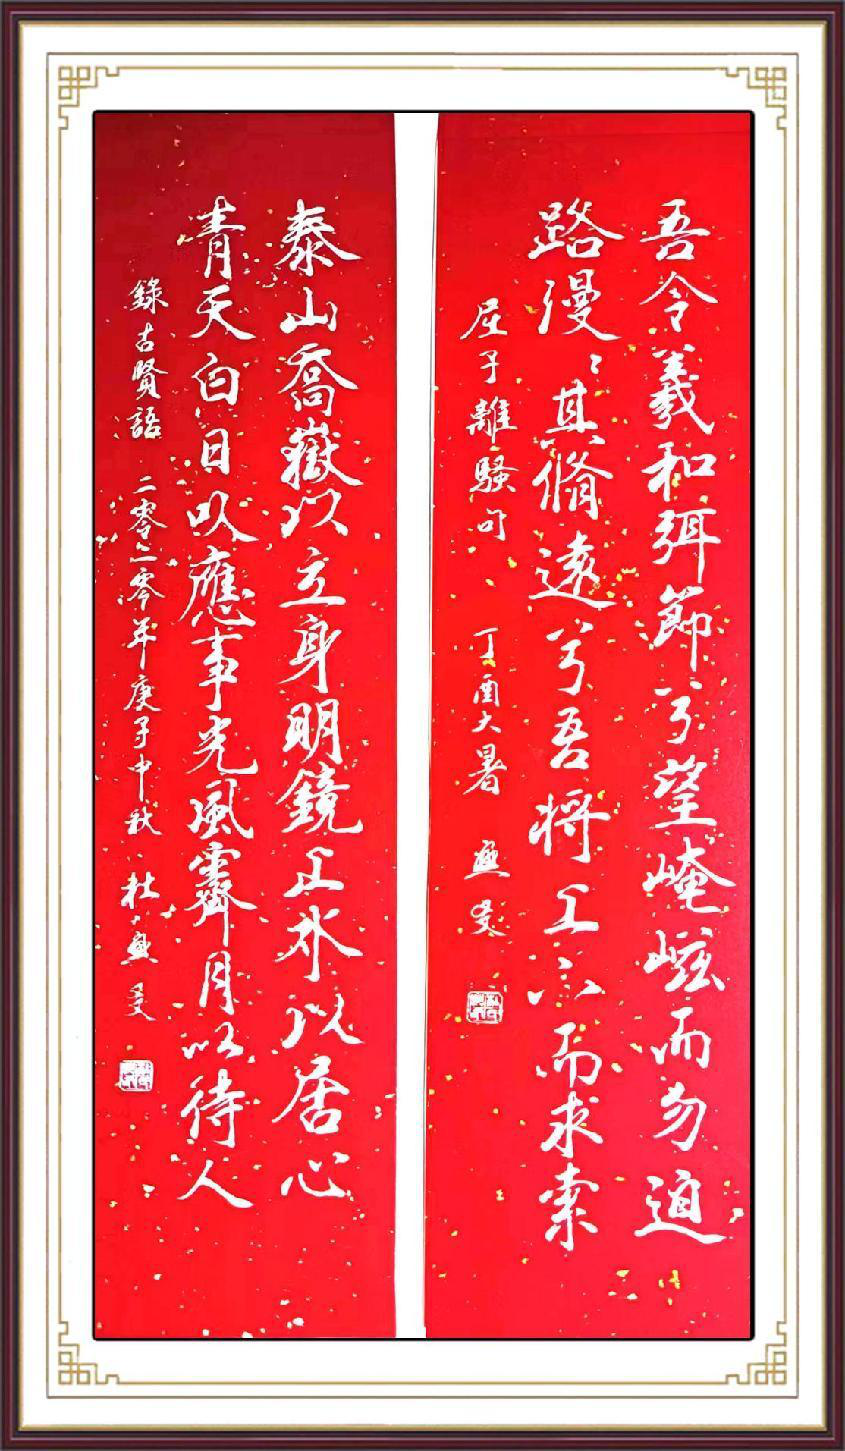 吾令羲和弭節兮望崦嵫而勿迫
路漫〻其脩遠兮吾將上下而求索
屈子離騷句 丁酉大暑
泰山喬嶽以立身明鏡止水以居心
青天白日以應事光風霽月以待人
錄古賢語 二零二零年庚子中秋 杜